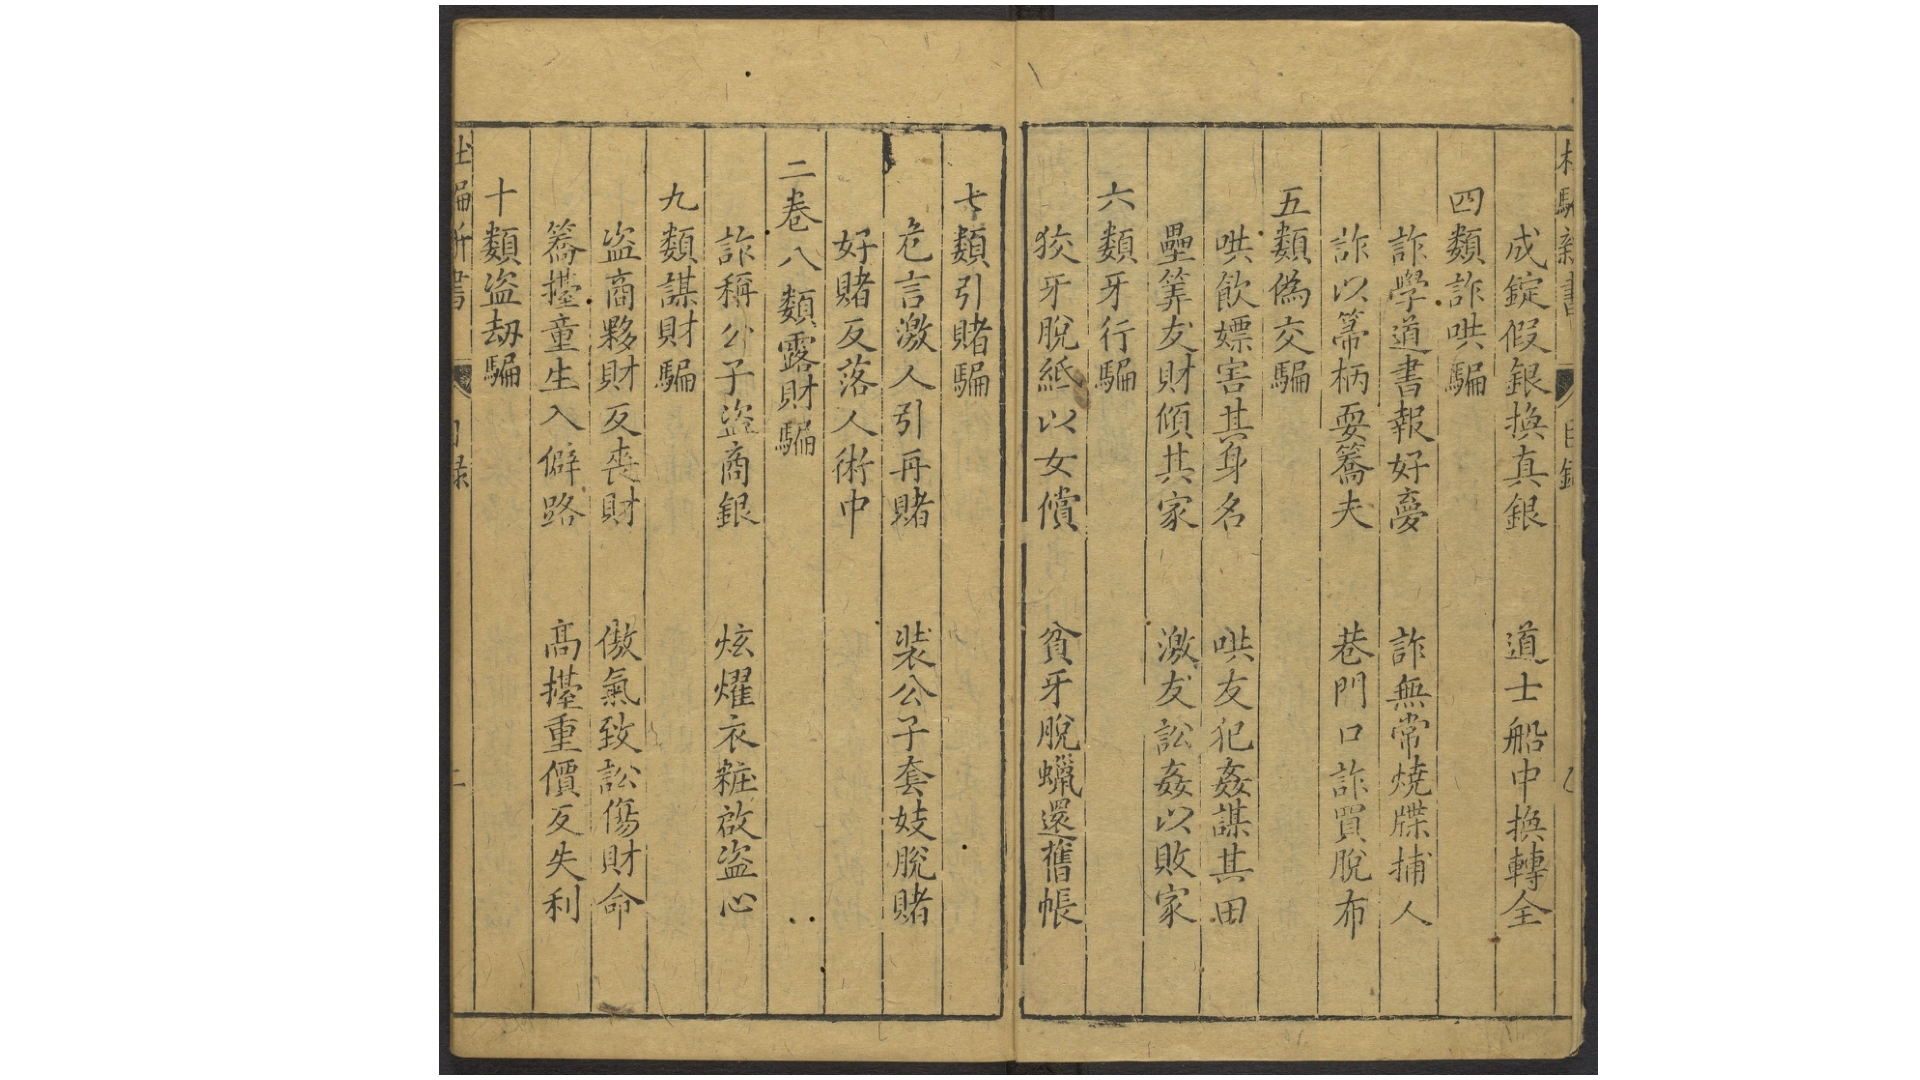 成錠假銀換真銀　道士船中換轉金
四類詐哄騙
詐學道書報好夢　詐無常燒牒捕人
詐以帚柄耍轎夫　巷門口詐買脫布
五類偽交騙
哄飲嫖害其身名　哄友犯姦謀其田
壘筭友財傾其家　激友訟姦以敗家
六類牙行騙
狡牙脫紙以女償　貧牙脫蠟還舊帳
七類引賭騙
危言激人引再賭　裝公子套妓脫賭
好賭反落人術中
二卷八類露財騙
詐稱公子盜商銀　炫耀衣粧啟盜心
九類謀財騙
盜商夥財反喪財　傲氣致訟傷財命
轎擡童生入僻路　高擡重價反失利
十類盜刼騙